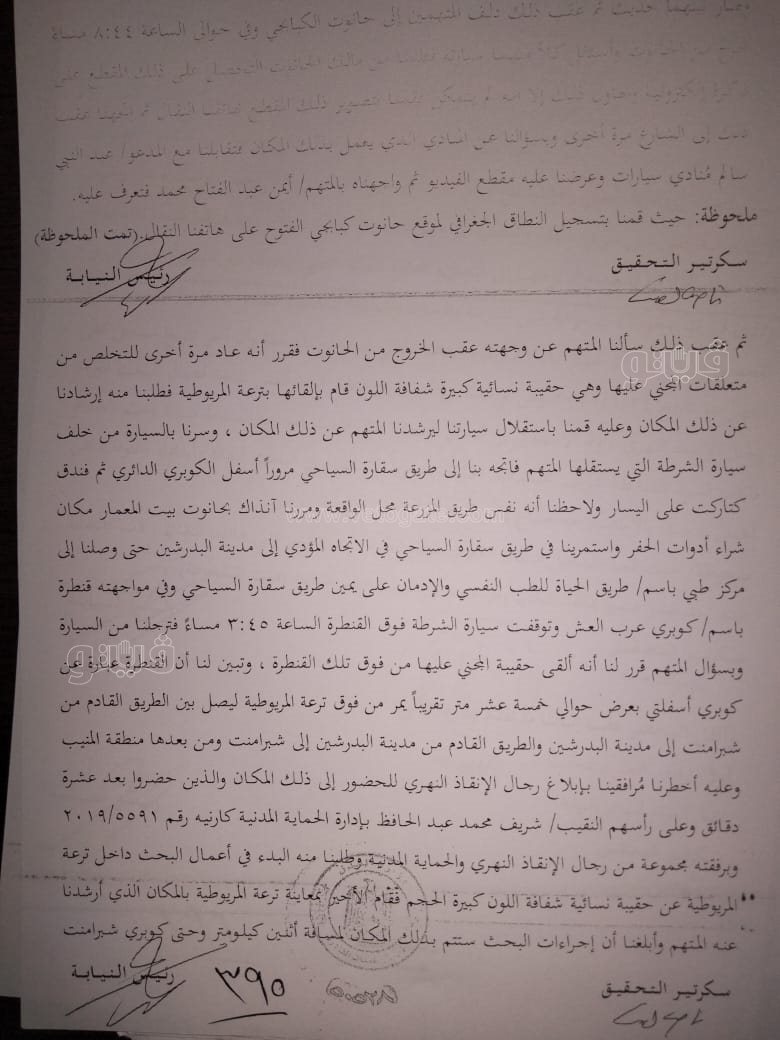 بينهما حديث ثم عقب ذلك دلف المتهمين إلى حانوت الكبابجي وفي حوالي الساعة ٨:٤٤ مساءً
من الحانوت سيارته فطلبنا من مالك الحانوت التحصل على ذلك المقطع على
إلكترونية وحاول ذلك إلا أنه لم يتمكن فقمنا بتصوير ذلك المقطع بهاتفنا النقال ثم اتجهنا عقب
ذلك إلى الشارع مرة أخرى وبسؤالنا عن المنادي الذي يعمل بذلك المكان فتقابلنا مع المدعو/ عبد النبي
سالم مُنادي سيارات وعرضنا عليه مقطع الفيديو ثم واجهناه بالمتهم/ أيمن عبد الفتاح محمد فتعرف عليه.
ملحوظة: حيث قمنا بتسجيل النطاق الجغرافي لموقع حانوت كبابجي الفتوح على هاتفنا النقال.(تمت الملحوظة)
سكرتير التحقيق
رئيس النيابة
ثم عقب ذلك سألنا المتهم عن وجهته عقب الخروج من الحانوت فقرر أنه عاد مرة أخرى للتخلص من
متعلقات المجني عليها وهي حقيبة نسائية كبيرة شفافة اللون قام بإلقائها بترعة المريوطية فطلبنا منه إرشادنا
عن ذلك المكان وعليه قمنا باستقلال سيارتنا ليرشدنا المتهم عن ذلك المكان ، وسرنا بالسيارة من خلف
سيارة الشرطة التي يستقلها المتهم فاتجه بنا إلى طريق سقارة السياحي مروراً أسفل الكوبري الدائري ثم فندق
كتاركت على اليسار ولاحظنا أنه نفس طريق المزرعة محل الواقعة ومررنا آنذاك بحانوت بيت المعمار مكان
شراء أدوات الحفر واستمرينا في طريق سقارة السياحي في الاتجاه المؤدي إلى مدينة البدرشين حتى وصلنا إلى
مركز طبي باسم/ طريق الحياة للطب النفسي والإدمان على يمين طريق سقارة السياحي وفي مواجهته قنطرة
باسم/ كوبري عرب العش وتوقفت سيارة الشرطة فوق القنطرة الساعة ٣:٤٥ مساءً فترجلنا من السيارة
وبسؤال المتهم قرر لنا أنه ألقى حقيبة المجني عليها من فوق تلك القنطرة ، وتبين لنا أن القنطرة عبارة عن
كوبري أسفلتي بعرض حوالي خمسة عشر متر تقريباً يمر من فوق ترعة المريوطية ليصل بين الطريق القادم من
شبرامنت إلى مدينة البدرشين والطريق القادم من مدينة البدرشين إلى شبرامنت ومن بعدها منطقة المنيب
وعليه أخطرنا مُرافقينا بإبلاغ رجال الإنقاذ النهري للحضور إلى ذلك المكان والذين حضروا بعد عشرة
دقائق وعلى رأسهم النقيب/ شريف محمد عبد الحافظ بإدارة الحماية المدنية كارنيه رقم ٢٠١٩/٥٥٩١
وبرفقته مجموعة من رجال الإنقاذ النهري والحماية المدنية وطلبنا منه البدء في أعمال البحث داخل ترعة
المريوطية عن حقيبة نسائية شفافة اللون كبيرة الحجم فقام الأخير بمعاينة ترعة المريوطية بالمكان الذي أرشدنا
عنه المتهم وأبلغنا أن إجراءات البحث ستتم بذلك المكان لمسافة أثنين كيلومتر وحتى كوبري شبرامنت
سكرتير التحقيق
رئيس النيابة
٣٩٥
ڤيتو
ڤيتو